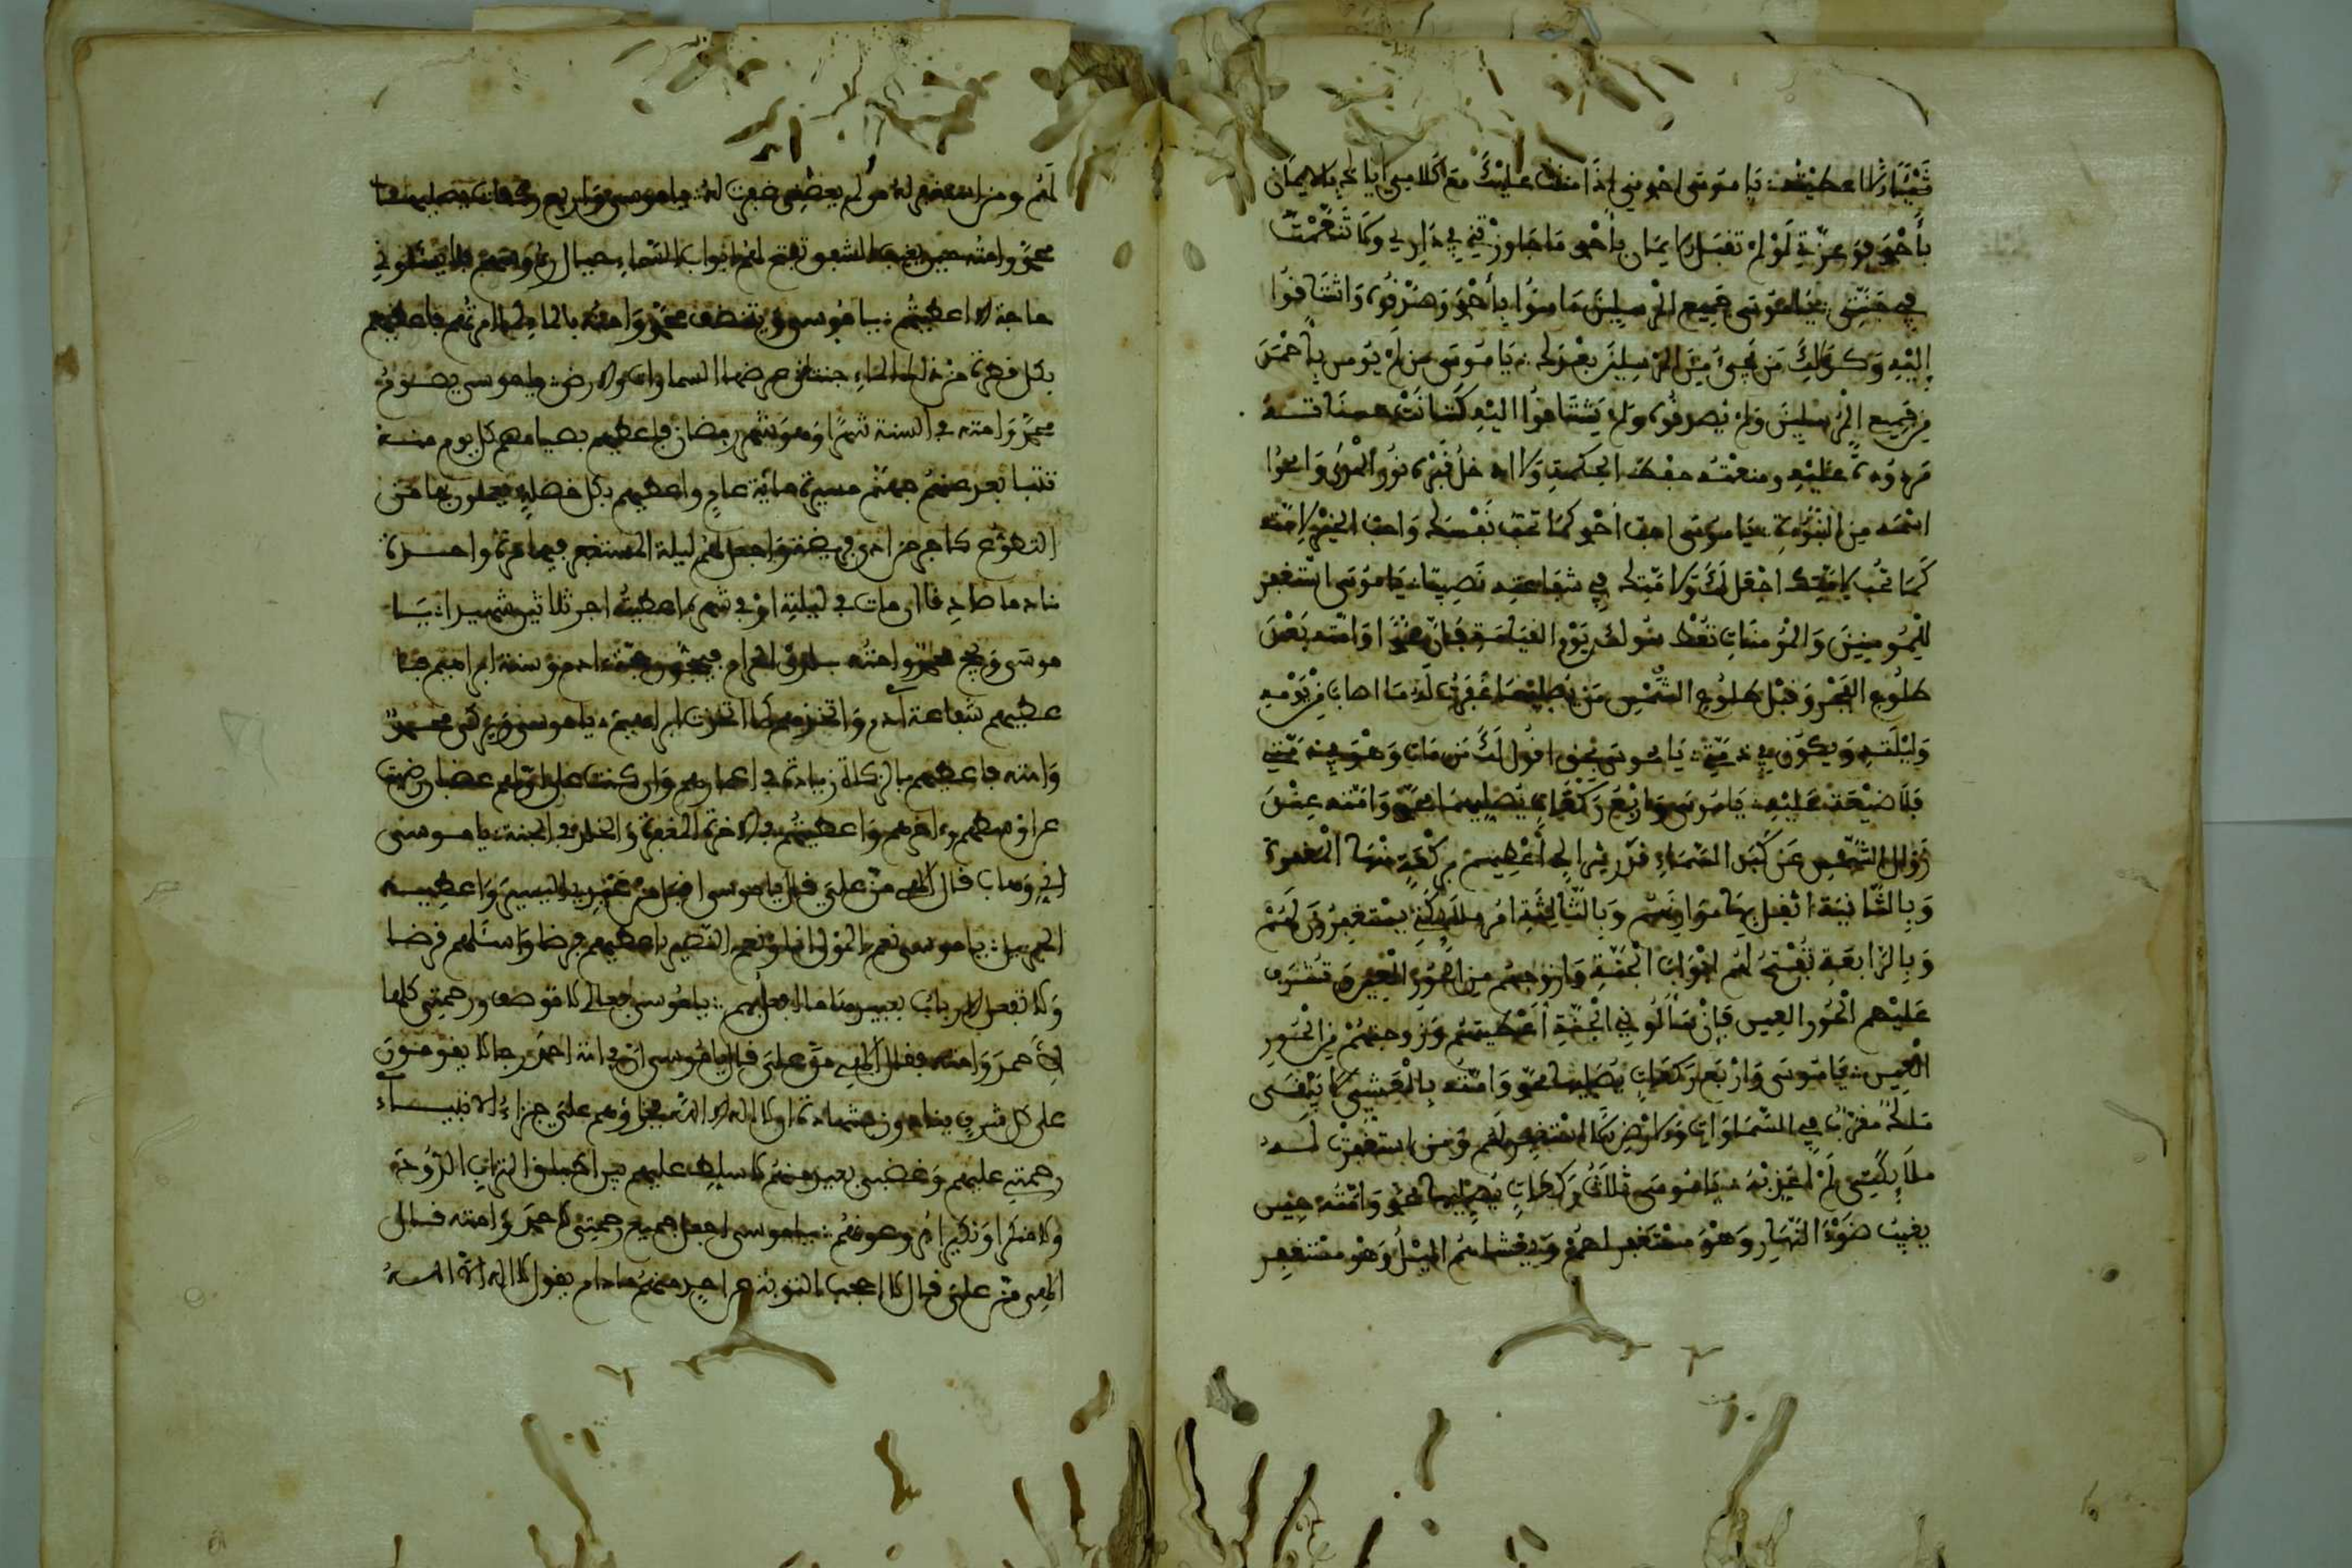 شيئا الا اعطيته يا موسى احمدني اذا مننت عليك مع كلامي اياك بالايمان
بأحمد فوعزتي لو لم تقبل الايمان بأحمد ما جاورتني في داري ولا تنعمت
في جنتي يا موسى جميع المرسلين ءامنوا بأحمد وصدقوه واشتاقوا
إليه وكذلك من يجيء من المرسلين بعدك يا موسى من لم يومن بأحمد
من جميع المرسلين ولم يصدقوه ولم يشتاقوا اليه كانت حسناته
مردودة عليه ومنعته حفظ الحكمة ولا ادخل قبره نور الهدى وامحوا
اسمه من النبوءة يا موسى احب احمد كما تحب نفسك واحب الخير لامته
كما تحب لامتك اجعل لك ولامتك في شفاعته نصيبا يا موسى استغفر
للمومنين والمؤمنات تعط سولك يوم القيامة فإن محمدا وامته بعد
طلوع الفجر وقبل طلوع الشمس من يصليهما غفرت له ما اصاب من يومه
وليلته ويكون في ذمتي يا موسى بحق اقول لك من مات وهو في ذمتي
فلا ضيعة عليه يا موسى واربع ركعات يصليها محمد وامته عند
زوال الشمس عن كبد السماء قدر شراك أعطيهم بركعة منها المغفرة
وبالثانية اثقل بها موازينهم وبالثالثة امر ملائكتي يستغفرون لهم
وبالرابعة تفتح لهم ابواب الجنة وازوجهم من الحور العين وتشرف
عليهم الحور العين فإن سألوني الجنة أعطيتهم وزوجتهم من الحور
العين يا موسى واربع ركعات يصليها محمد وامته بالعشي لا يبقى
ملك مقرب في السماوات ولا الارض الا استغفر لهم ومن استغفرت له
ملائكتي لم اعذبه يا موسى ثلاث ركعات يصليها محمد وامته حين
يغيب ضوء النهار وهو مستغفر لهم ويغشاهم الليل وهو مستغفر
لهم ومن استغفر له يا موسى واربع ركعات يصليها
محمد وامته حين يغيب الشفق تفتح لهم ابواب السماء فلا يسئلوني
حاجة الا اعطيتهم يا موسى يتنظف محمد وامته بالماء كما امرتهم فاعطيهم
بكل قطرة من ذلك الماء جنة عرضها السماوات والارض يا موسى يصوم
محمد وامته في السنة شهرا وهو شهر رمضان فاعطيهم بصيامهم كل يوم منه
تتباعد عنهم جهنم مسيرة مائة عام واعطيهم بكل خصلة يعملون بها من
التطوع كأجر من ادى فريضة واجعل لهم ليلة المستغفر فيها مرة واحدة
نادما صادقا ان مات في ليلته او في شهره اعطيته اجر ثلاثين شهيدا يا
موسى ويحج محمد وامته بلدي الحرام فيحجون حجة ادم وسنة ابراهيم فا
عطيهم شفاعة آدم واتخذهم كما اتخذت ابراهيم يا موسى ويزكي محمد
وامته فاعطيهم بالزكاة زيادة في اعمارهم وان كنت على اولهم غضبان رضيت
عن اوسطهم وءاخرهم واعطيتهم في الاخرة المغفرة والخلد في الجنة يا موسى
اني وهاب قال الهي من علي قال يا موسى اقبل من عبدي اليسير واعطيه
الجزيل يا موسى نعم المولى انا ونعم النصير اعطيهم قرضا واسئلهم قرضا
ولا تفعل الارباب بعبيدها ما افعل بهم يا موسى فعالي لا توصف ورحمتي كلها
لأحمد وامته فقال الهي من علي قال يا موسى ان في امة احمد رجالا يقومون
على كل شرف ينادون بشهادة ان لا اله الا الله فجزاؤهم علي جزاء الانبياء
رحمتي عليهم وغضبي بعيد منهم لا اسلط عليهم بين اطباق التراب الدود
ولا منكرا ونكيرا يا موسى اجعل جميع رحمتي لاحمد وامته قال
الهي من علي قال لا احجب التوبة عن احد منهم ما دام يقول لا اله الا الله